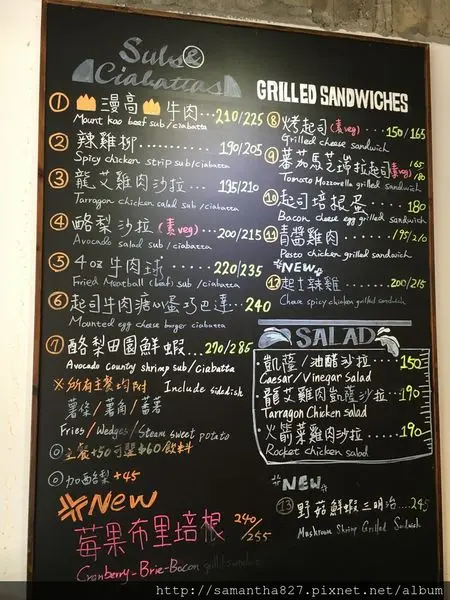 Subs &
Ciabattas
① 漫高 牛肉...210/225
Mount kao beef sub/ciabatta
② 辣雞柳...... 190/205
Spicy chicken strip sub/ciabatta
③ 龍艾雞肉沙拉...... 195/210
Tarragon chicken salad sub/ciabatta
④ 酪梨沙拉(素veg)...200/215
Avocado salad sub/ciabatta
⑤ 4oz 牛肉球...... 220/235
Fried Meatball (beef) sub/ciabatta
⑥ 起司牛肉溏心蛋巧巴達...240
Mounted egg cheese burger ciabatta
⑦ 酪梨田園鮮蝦...270/285
Avocado country shrimp sub/ciabatta
※所有主餐均附 Include sidedish
薯條/薯角/蕃薯
Fries/Wedges/Steam sweet potato
◎主餐+50可選$60飲料
◎加酪梨+45
※New
莓果布里培根 240/255
Cranberry-Brie-Bacon grilled
GRILLED SANDWICHES
⑧ 烤起司(素veg)...... 150/165
Grilled cheese sandwich
⑨ 蕃茄馬芝瑞拉起司(素veg) 165/180
Tomato Mozzarella grilled sandwich
⑩ 起司培根蛋...... 180
Bacon cheese egg grilled sandwich
⑪ 青醬雞肉......195/210
Pesto chicken grilled sandwich
※NEW※
⑫ 起士辣雞......200/215
Chese spicy chicken grilled sandwich
SALAD
·凱薩/油醋沙拉......150
Caesar/Vinegar Salad
·龍艾雞肉凱薩沙拉...190
Tarragon Chicken salad
·火箭菜雞肉沙拉......190
Rocket chicken salad
※NEW※
⑬ 野菇鮮蝦三明治...245
Mushroom Shrimp Grilled Sandwich
http://samantha827.pixnet.net/album